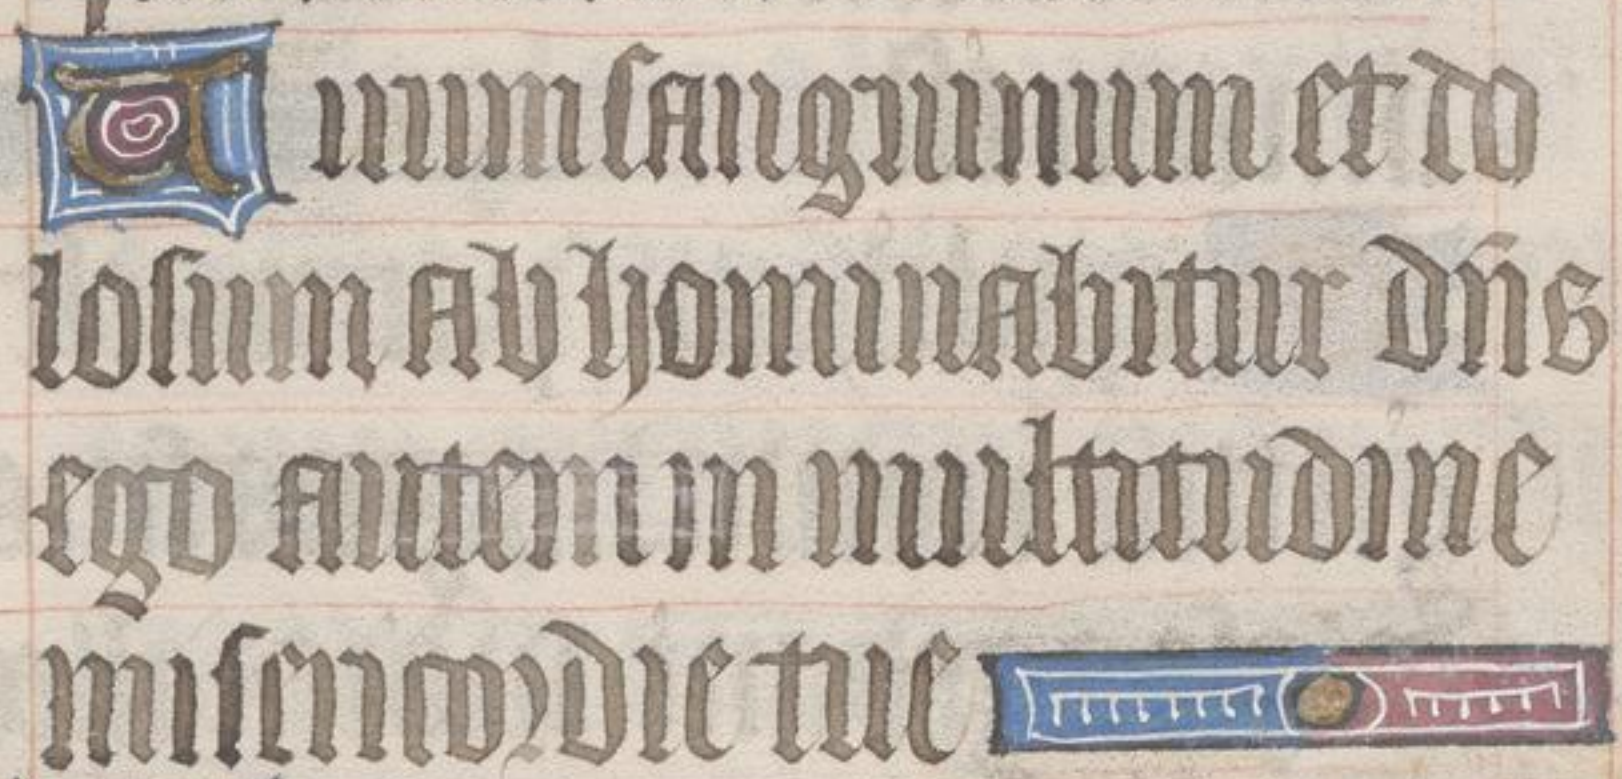 Uirum sanguinum et do
losum ab hominabitur dñs
ego autem in multitudine
misericordie tue